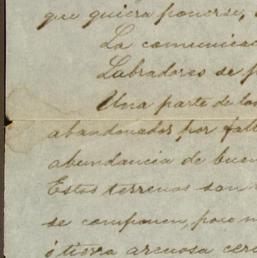 que quiera ponerse,
La comunicac
Labradores se p
Una parte de los
abandonados por falt
abundancia de buen
Estos terrenos son
se componen, poco m
ó tierra arcuosa cerc